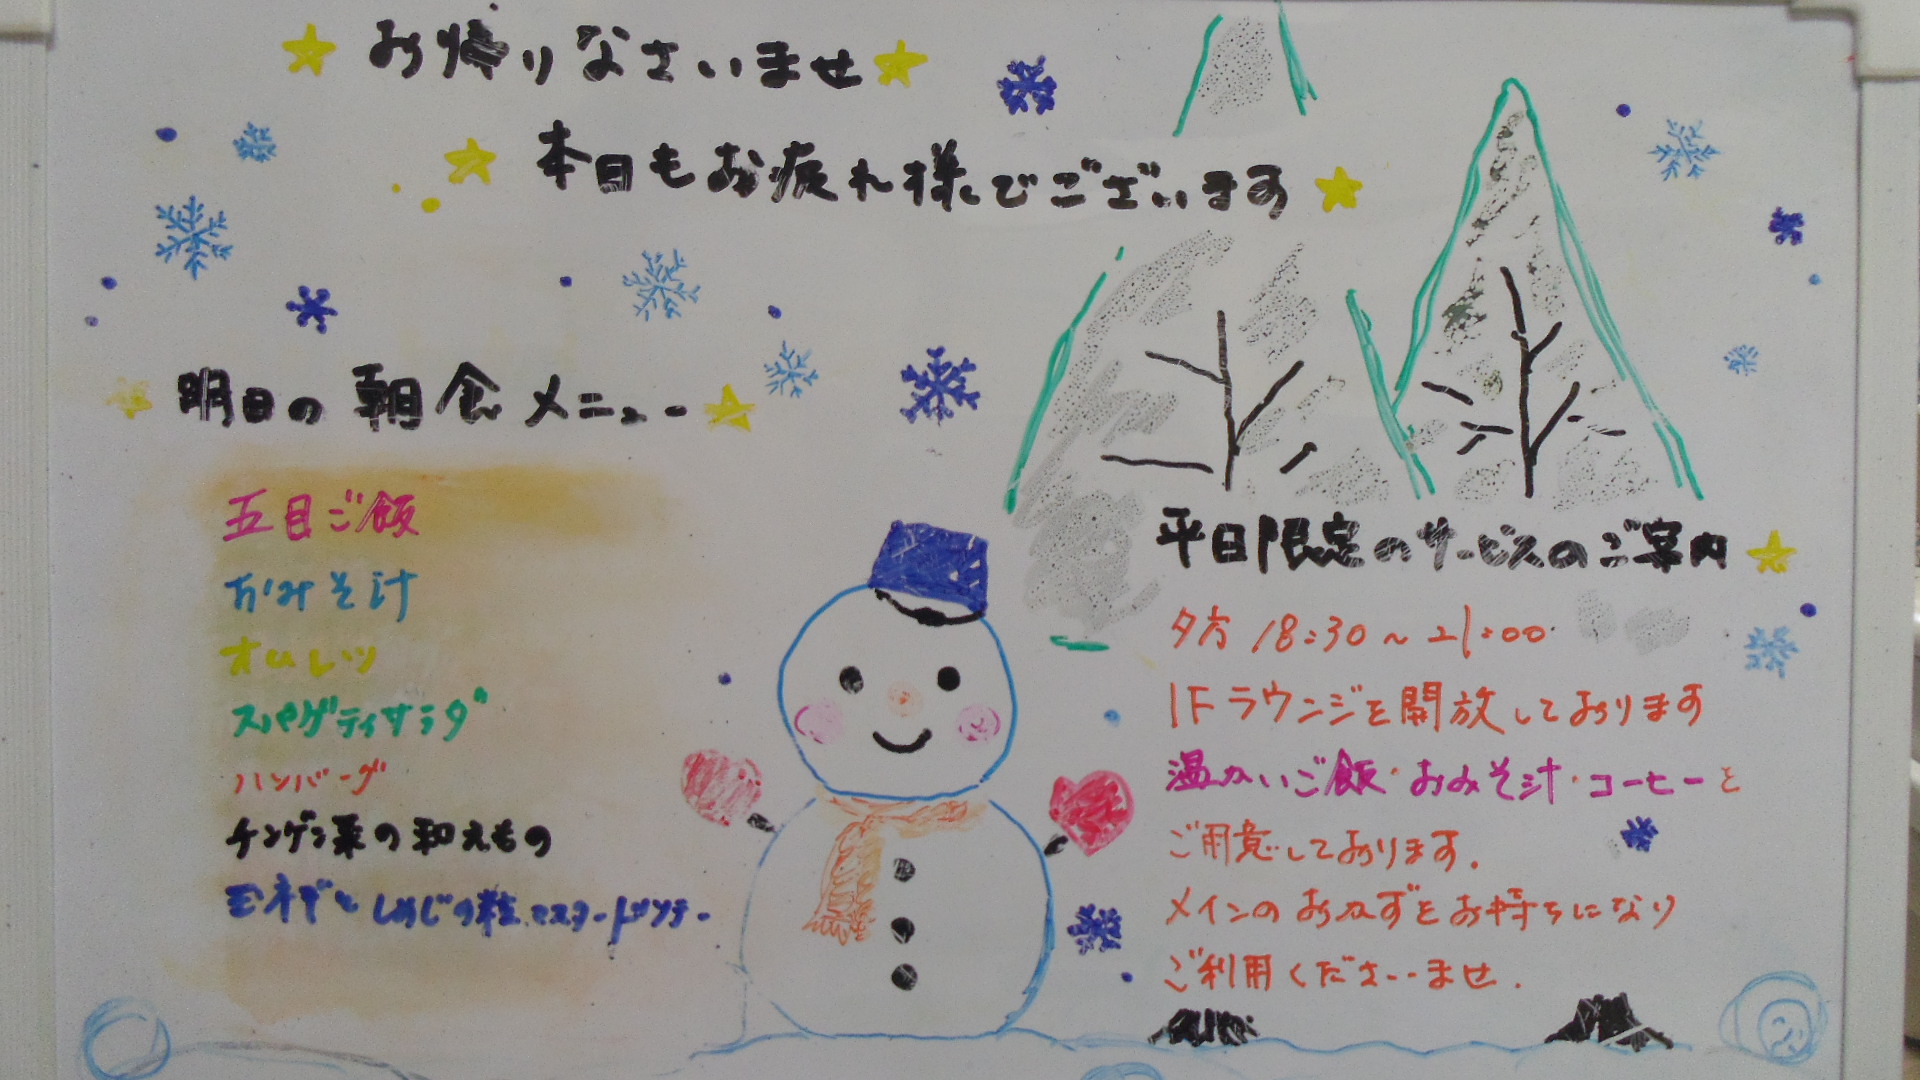 お帰りなさいませ
本日もお疲れ様でございます
明日の朝食メニュー
五目ご飯
おみそ汁
オムレツ
スパゲティサラダ
ハンバーグ
チンゲン菜の和えもの
玉ネギとしめじの粒マスタードソテー
平日限定のサービスのご案内
夕方 18:30～21:00
1Fラウンジを開放しております
温かいご飯・おみそ汁・コーヒーと
ご用意しております.
メインのおかずをお持ちになり
ご利用くださいませ.